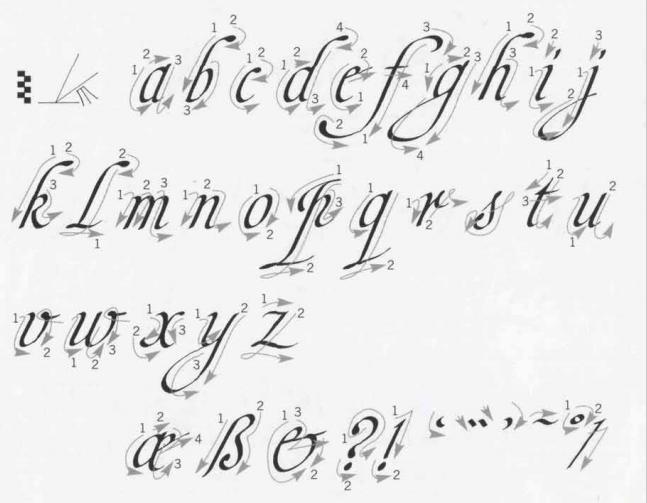 a b c d e f g h i j
k l m n o p q r s t u
v w x y z
æ ß & ? !